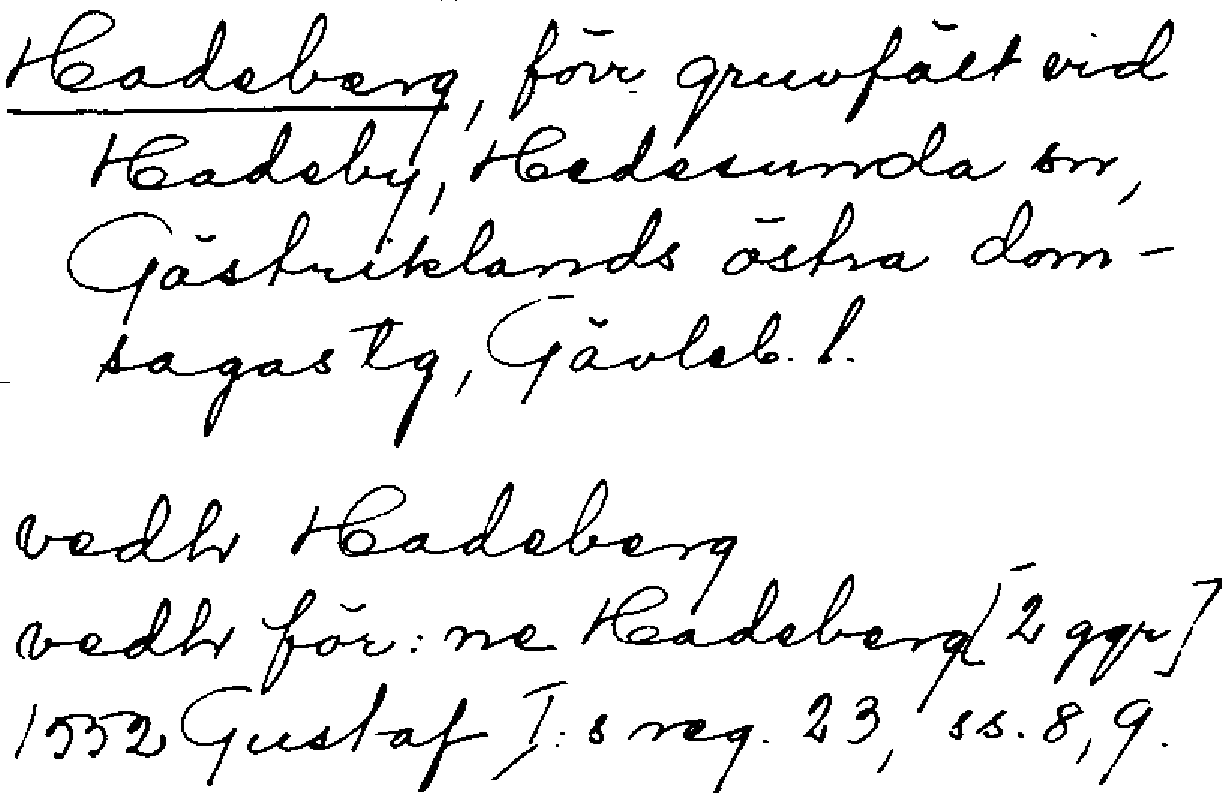 Hadeberg, förr gruvfält vid
Hadeby, Hedesunda sn,
Gästriklands östra dom-
sagas tg, Gävleb. l.
vedhr Hadeberg
vedhr för:ne Hadeberg [2 ggr]
1552 Gustaf I:s reg. 23, ss. 8, 9.